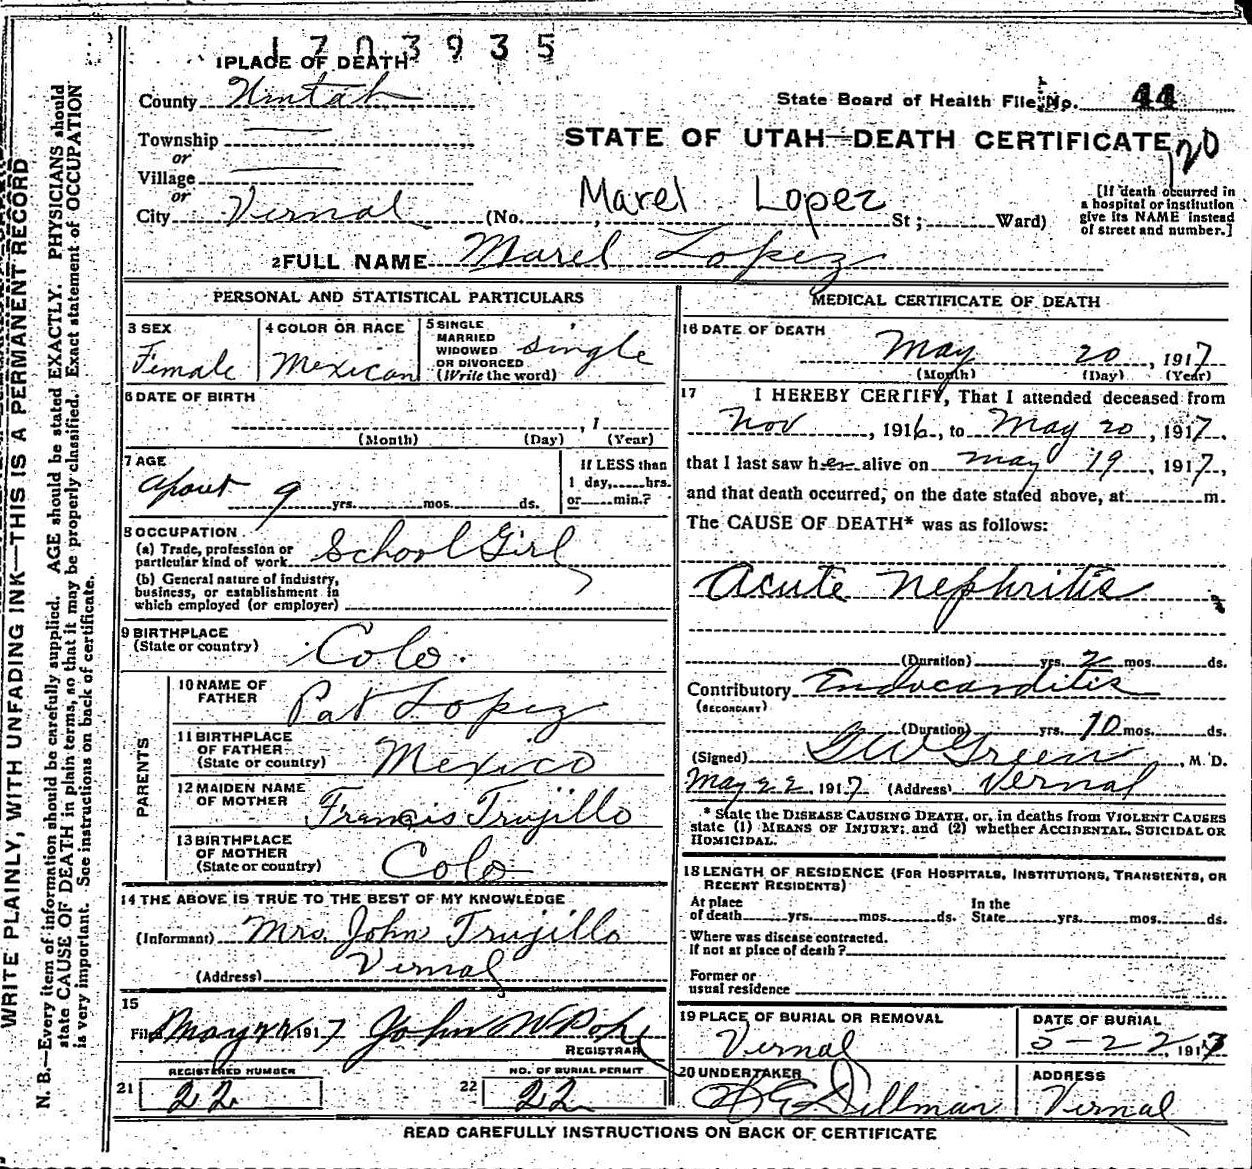 1703935
1 PLACE OF DEATH
County Uintah
State Board of Health File No. 44
Township
or
Village
or
STATE OF UTAH—DEATH CERTIFICATE
120
City Vernal (No. Marel Lopez St; Ward)
[If death occurred in
a hospital or institution
give its NAME instead
of street and number.]
2 FULL NAME Marel Lopez
PERSONAL AND STATISTICAL PARTICULARS
3 SEX
Female
4 COLOR OR RACE
Mexican
5 SINGLE
MARRIED
WIDOWED
OR DIVORCED
(Write the word)
single
6 DATE OF BIRTH
, 1
(Month) (Day) (Year)
7 AGE
about 9 yrs. mos. ds.
If LESS than
1 day, hrs.
or min.?
8 OCCUPATION
(a) Trade, profession or
particular kind of work School Girl
(b) General nature of industry,
business, or establishment in
which employed (or employer)
9 BIRTHPLACE
(State or country) Colo.
PARENTS
10 NAME OF
FATHER Pat Lopez
11 BIRTHPLACE
OF FATHER
(State or country) Mexico
12 MAIDEN NAME
OF MOTHER Francis Trujillo
13 BIRTHPLACE
OF MOTHER
(State or country) Colo
14 THE ABOVE IS TRUE TO THE BEST OF MY KNOWLEDGE
(Informant) Mrs John Trujillo
(Address) Vernal
15
Filed May 22 1917 John W Pope
REGISTRAR
21
REGISTERED NUMBER
22
22
NO. OF BURIAL PERMIT
22
MEDICAL CERTIFICATE OF DEATH
16 DATE OF DEATH
May 20, 1917
(Month) (Day) (Year)
17 I HEREBY CERTIFY, That I attended deceased from
Nov, 1916, to May 20, 1917,
that I last saw her alive on May 19, 1917,
and that death occurred, on the date stated above, at m.
The CAUSE OF DEATH* was as follows:
Acute Nephritis
(Duration) yrs. 2 mos. ds.
Contributory Endocarditis
(SECONDARY)
(Duration) yrs. 10 mos. ds.
(Signed) G W Green, M. D.
May 22, 1917 (Address) Vernal
* State the DISEASE CAUSING DEATH, or, in deaths from VIOLENT CAUSES
state (1) MEANS OF INJURY; and (2) whether ACCIDENTAL, SUICIDAL OR
HOMICIDAL.
18 LENGTH OF RESIDENCE (FOR HOSPITALS, INSTITUTIONS, TRANSIENTS, OR
RECENT RESIDENTS)
At place In the
of death yrs. mos. ds. State yrs. mos. ds.
Where was disease contracted.
If not at place of death?
Former or
usual residence
19 PLACE OF BURIAL OR REMOVAL
Vernal
DATE OF BURIAL
5-22, 1917
20 UNDERTAKER
Dillman
ADDRESS
Vernal
READ CAREFULLY INSTRUCTIONS ON BACK OF CERTIFICATE
WRITE PLAINLY, WITH UNFADING INK—THIS IS A PERMANENT RECORD
N. B.—Every item of information should be carefully supplied. AGE should be stated EXACTLY. PHYSICIANS should
state CAUSE OF DEATH in plain terms, so that it may be properly classified. Exact statement of OCCUPATION
is very important. See instructions on back of certificate.